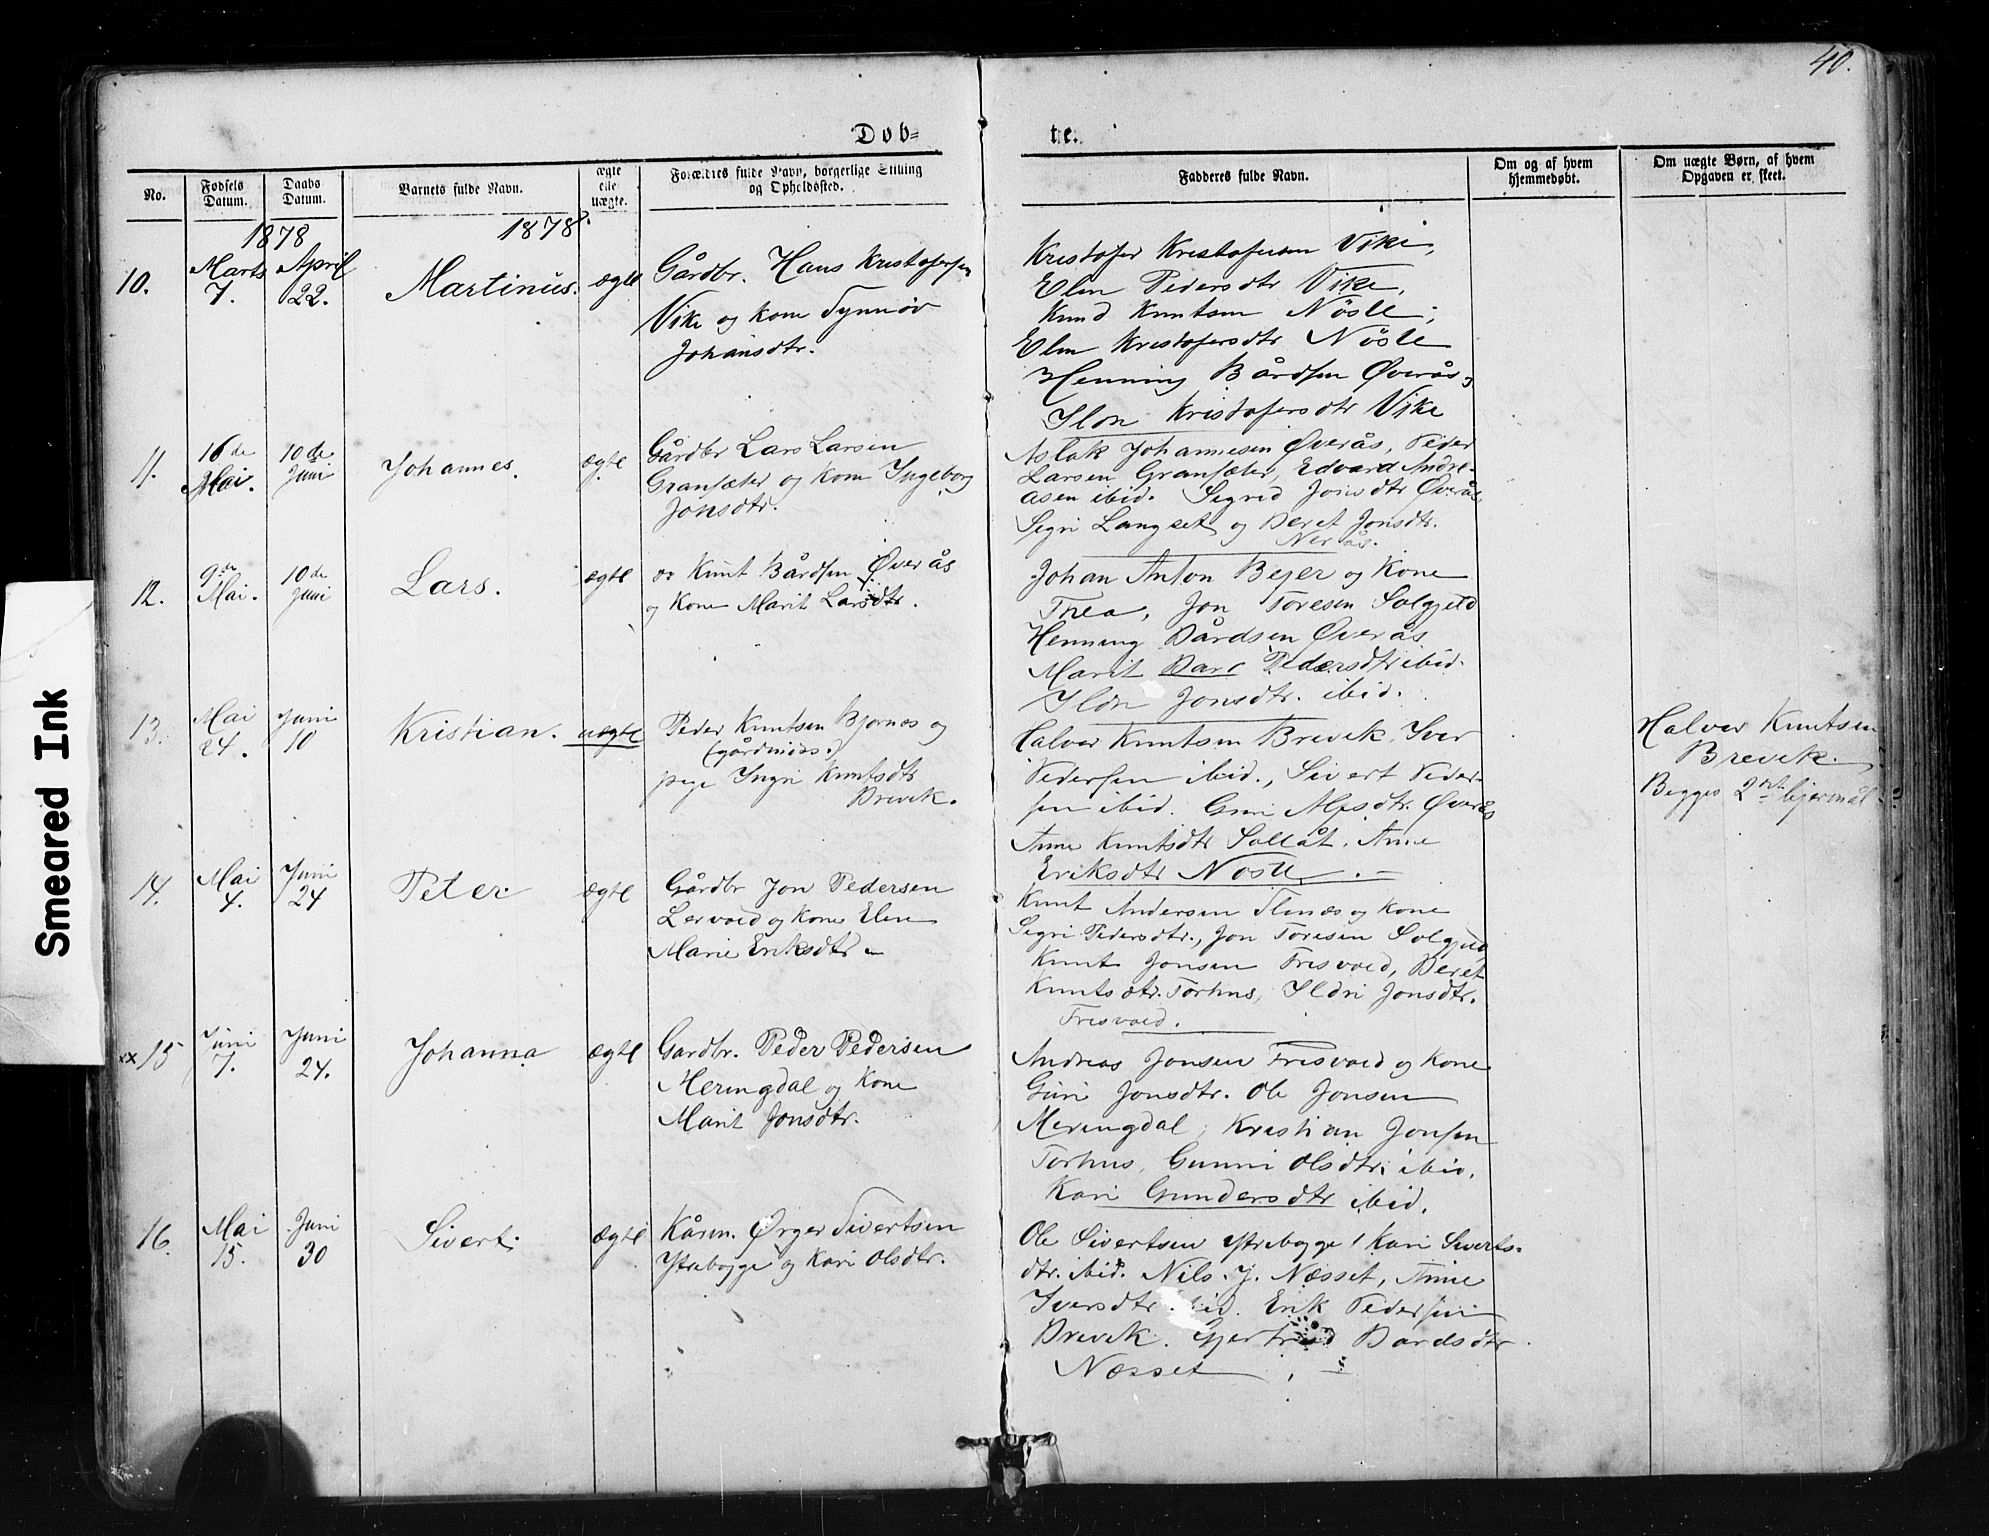 40.
Döb=
te.
No.
Fødsels Datum.
Daabs Datum.
Barnets fulde Navn.
ægte eller uægte.
Forældres fulde Navn, borgerlige Stilling og Opholdssted.
Fadderes fulde Navn.
Om og af hvem hjemmedøbt.
Om uægte Børn, af hvem Opgaven er skeet.
1878
1878
10.
Marts 7.
April 22.
Martinus.
ægte
Gårdbr. Hans Kristofersen
Vike og Kone Synnøv
Johansdtr.
Kristofer Kristofersen Vike,
Elen Pedersdtr Vike,
Knud Knutsen Nöste,
Elen Kristofersdtr Nöste
Henning Bårdsen Øverås,
Ildri Kristofersdtr Vike
11.
16de Mai.
10de Juni
Johannes.
ægte
Gårdbr Lars Larsen
Gransæter og Kone Ingeborg
Jonsdtr.
Aslak Johannesen Øverås, Peder
Larsen Gransæter, Edvard Andre-
asen ibid. Sigrid Jonsdtr Øverås
Sigri Langset og Beret Jonsdtr.
Nerås.
12.
9de Mai.
10de Juni
Lars.
ægte
Knut Bårdsen Øverås
og Kone Marit Larsdtr.
Johan Anton Bejer og Kone
Thea, Jon Toresen Solgjeld
Henning Bårdsen Øverås
Marit Pedersdtr ibid.
Ildri Jonsdtr. ibid.
13.
Mai 24.
Juni 10
Kristian.
uægte
Peder Knutsen Bjornes og
(gårdmds.)
pige Ingri Knutsdtr
Brevik.
Halvor Knutsen Brevik, Iver
Pedersen ibid., Sivert Peder-
sen ibid. Guri Alfsdtr. Øverås
Anne Knutsdtr Sollåt. Anne
Eriksdtr Nöste.
Halvor Knutsen
Brevik.
Begges 2det lejermål
14.
Mai 4.
Juni 24
Peter.
ægte
Gårdbr Jon Pedersen
Lervold og Kone Elen
Marie Eriksdtr
Knut Andersen Ilenæs og Kone
Sigri Pedersdtr., Jon Toresen Solgjeld
Knut Jonsen Frisvold, Beret
Knutsdtr. Torhus, Ildri Jonsdtr.
Frisvold.
xx 15
Juni 7.
Juni 24.
Johanna
ægte
Gardbr. Peder Pedersen
Meringdal og Kone
Marit Jonsdtr.
Andreas Jonsen Frisvold og Kone
Guri Jonsdtr. Ole Jonsen
Meringdal, Kristian Jonsen
Torhus, Gunni Olsdtr. ibid.
Kari Gundersdtr ibid.
16.
Mai 15.
Juni 30
Sivert.
ægte
Kårm. Ørger Sivertsen
Ytrebygge og Kari Olsdtr.
Ole Sivertsen Ytrebygge, Kari Siverts-
dtr. ibid. Nils J. Næsset, Anne
Iversdtr ibid. Erik Pedersen
Brevik. Gjertrud Bardsdtr
Næsset
Smeared Ink